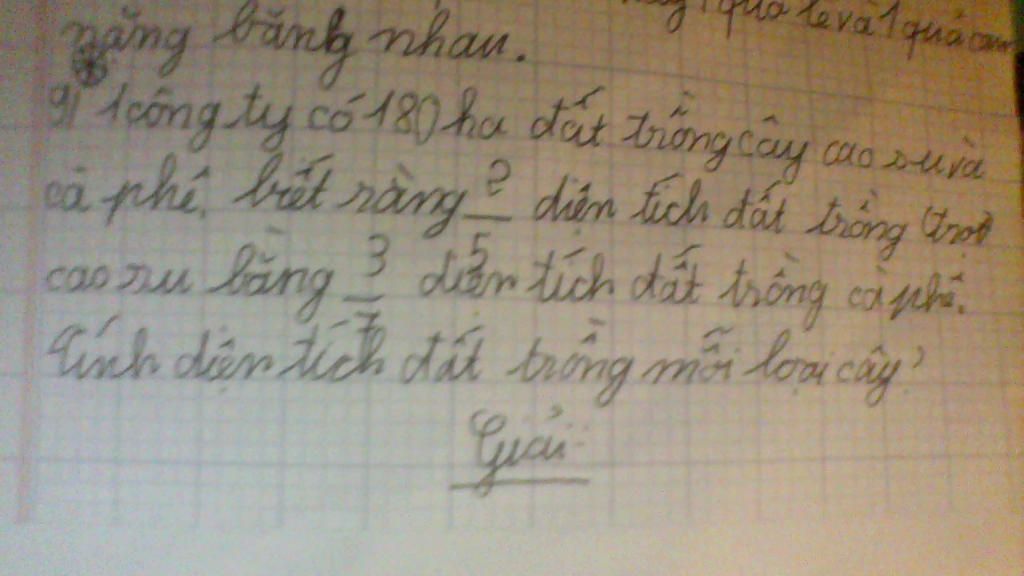 quả lê và 1 quả cam
nặng bằng nhau.
9) 1 công ty có 180 ha đất trồng cây cao su và
cà phê. biết rằng 2/5 diện tích đất trồng
cao su bằng 3/7 diện tích đất trồng cà phê.
Tính diện tích đất trồng mỗi loại cây?
Giải